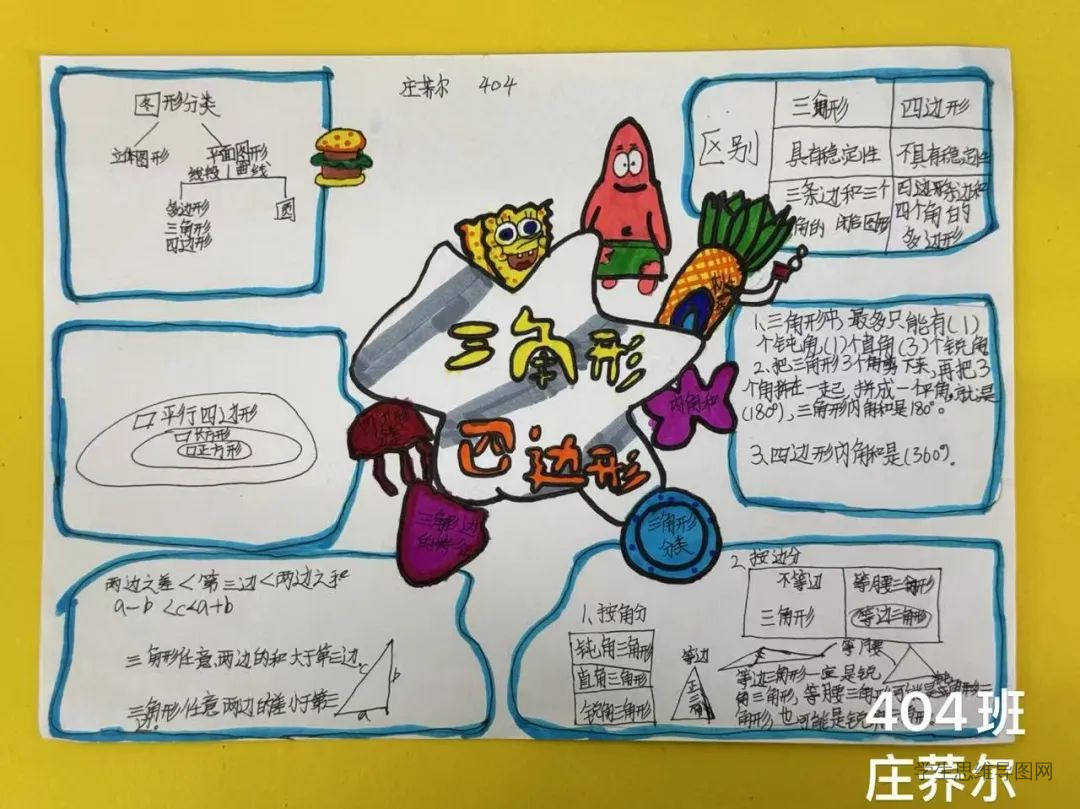 庄荞尔 404
图形分类
立体图形 平面图形
线段 曲线
多边形 圆
三角形
四边形
区别 三角形 四边形
具有稳定性 不具有稳定性
三条边和三个
角的
四个角的
多边形
三角形
四边形
内角和
三角形边
三角形
分类
平行四边形
长方形
正方形
1、三角形中,最多只能有(1)
个钝角,(1)个直角(3)个锐角
2、把三角形3个角剪下来,再把3
个角拼在一起,拼成一个平角,就是
(180°),三角形内角和是180°。
3、四边形内角和是(360°)。
两边之差<第三边<两边之和
a-b<c<a+b
三角形任意两边的和大于第三边。
三角形任意两边的差小于第三
边。
c b
a
1、按角分
钝角三角形
直角三角形
锐角三角形
2、按边分
不等边 等腰三角形
三角形 等边三角形
等边 等腰
正三角
等边三角形一定是锐
角三角形,等腰三角形
角形,也可能是锐
404班
庄荞尔
学生思维导图网